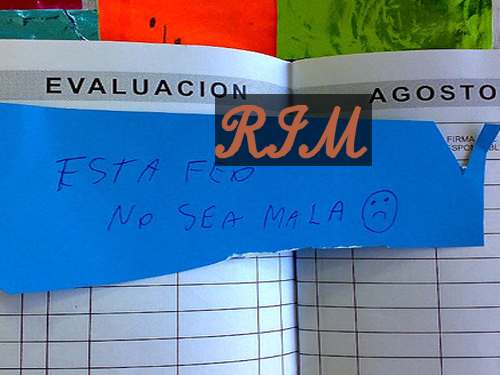 EVALUACION
AGOSTO
RIM
FIRMA
ESTA FEO
NO SEA MALA